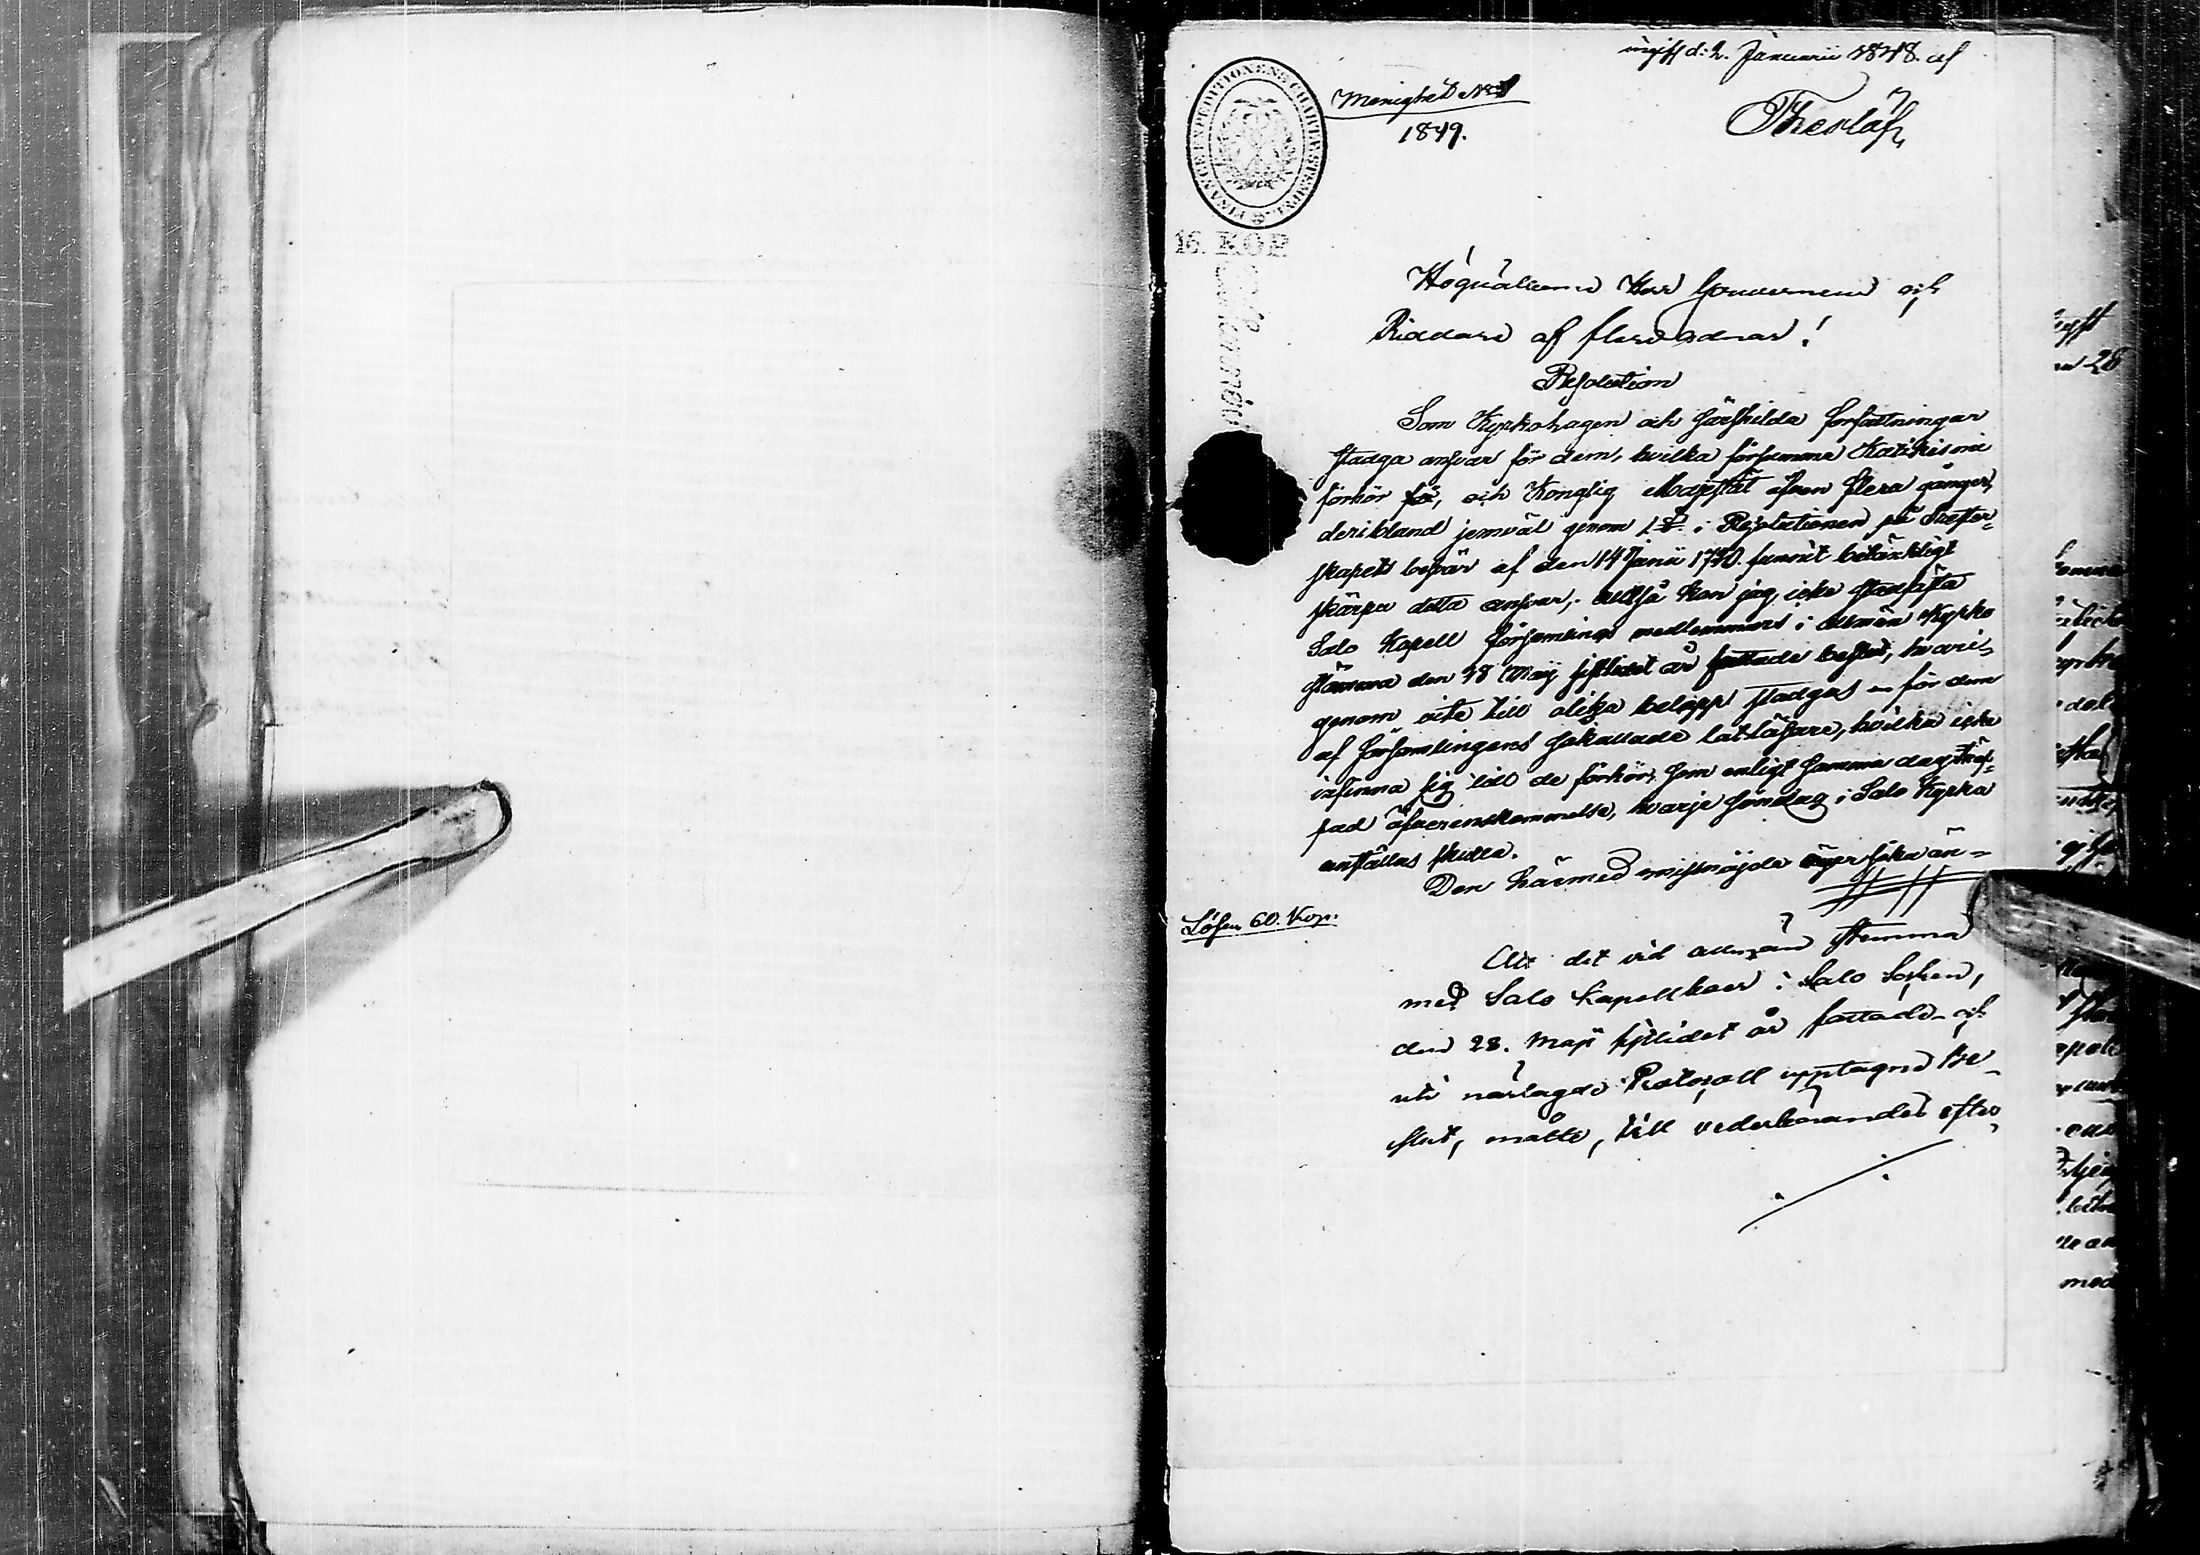 ingifv d. 2. Januarii 1848. af
Theslöf,
Menighet No 1
1849.
FINANCE EXPEDITIONENS CHARTÆ STEMPEL
16. KOP.
Högvälborne Herr Gouverneur och
Riddare af flere ordnar!
Resolution
Som Kyrkolagen och särskilda författningar
stadga ansvar för dem, hvilka försumma Katekismi
förhör, och Konglig Majestät äfven flera gånger,
deribland jemväl genom i Resolutionen på
skapets besvär af den 14 Junii funnit betänkligt
skärpa detta ansvar; Alltså kan jag icke stadfästa
Salo Kapell församlings medlemmars i allmän Kyrko
stämma den 28 Maji sistlidet år fattade beslut, hvari-
genom vite till olika belopp stadgas för dem
af församlingens så kallade lättläsare, hvilka icke
infinna sig till de förhör, som enligt samma dag träf-
fad öfverenskommelse, hvarje söndag i Salo Kyrka
anställas skulle.
Den härmed missnöjde äger söka än-
Lösen 60. Kop.
Att det vid allmän stämma
med Salo Kapellboer i Salo Socken,
den 28. Maji sistlidet år fattade och
uti närlagde Protocoll upptagne Be-
slut, måtte, till vederbörandes efter